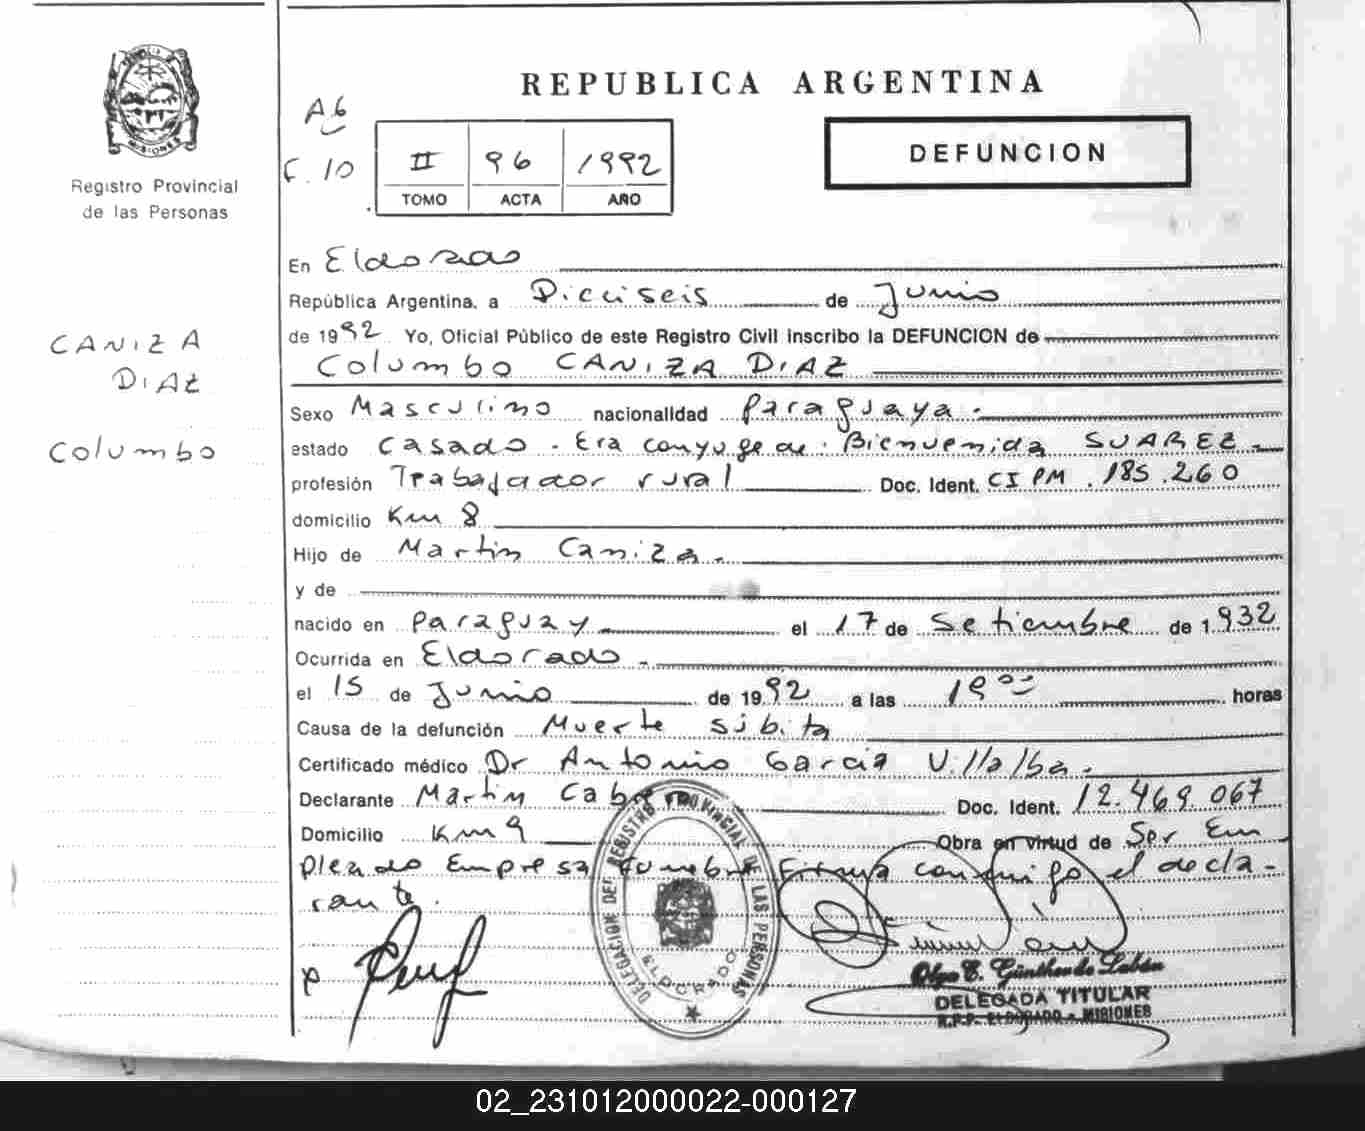 REPUBLICA ARGENTINA
MISIONES
Registro Provincial
de las Personas
A6
F. 10
II 96 1992
TOMO ACTA AÑO
DEFUNCION
CANIZA
DIAZ
Columbo
En Eldorado
República Argentina, a Dieciseis de Junio
de 1992 Yo, Oficial Público de este Registro Civil inscribo la DEFUNCION de
Columbo CANIZA DIAZ
Sexo Masculino nacionalidad Paraguaya.-
estado Casado. Era conyuge de: Bienvenida SUAREZ.-
profesión Trabajador rural Doc. Ident. CI PM. 185.260
domicilio Km 8
Hijo de Martin Caniza.
y de
nacido en Paraguay el 17 de Setiembre de 1.932
Ocurrida en Eldorado.
el 15 de Junio de 1992 a las 19 00 horas
Causa de la defunción Muerte súbita
Certificado médico Dr Antonio Garcia Villalba.
Declarante Martin Doc. Ident. 12.469.067
Domicilio Km 9 Obra en virtud de Ser Em
pleado Empresa Funebre Firma conmigo el decla-
rante.
DELEGACION DEL REGISTRO PROVINCIAL DE LAS PERSONAS
ELDORADO
Olga E. Günther de
DELEGADA TITULAR
R.P.P. ELDORADO - MISIONES
02_231012000022-000127